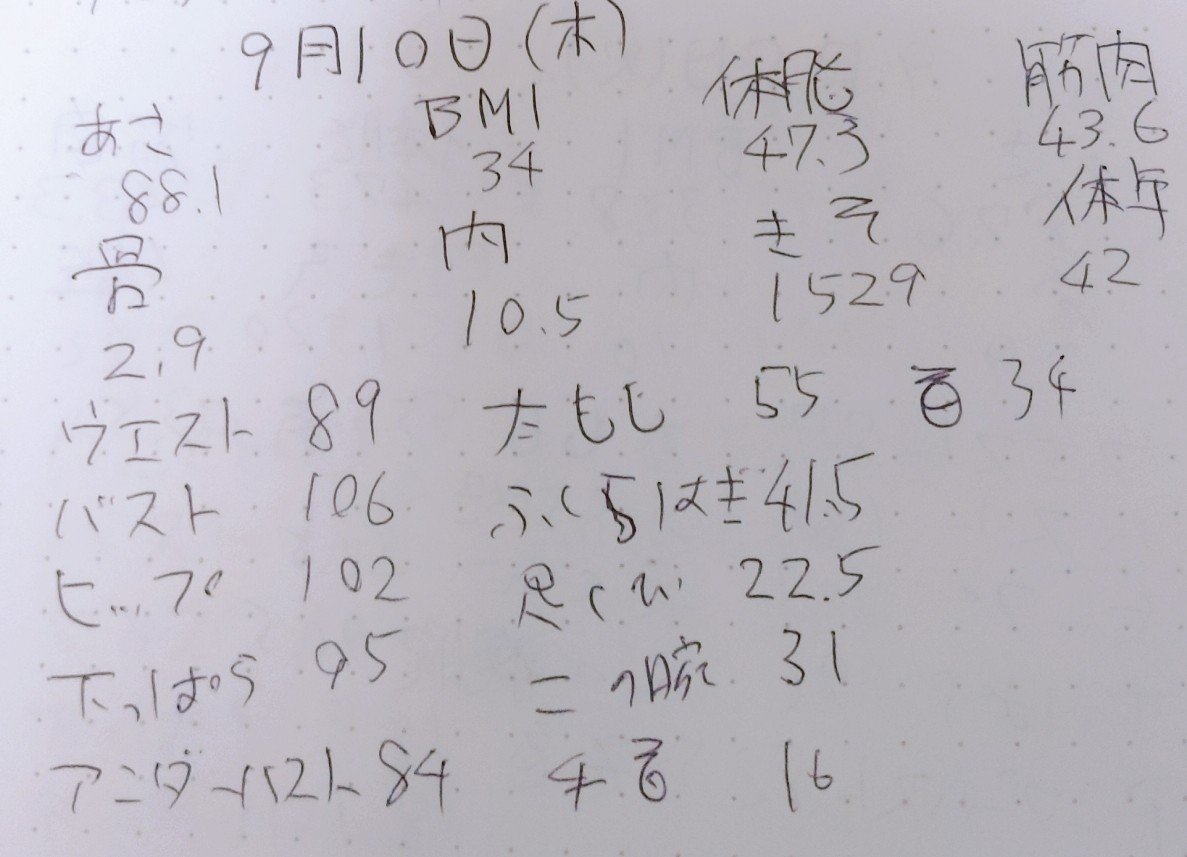 9月10日(木)
あさ BMI 体脂 筋肉
88.1 34 47.3 43.6
骨 内 きそ 体年
2.9 10.5 1529 42
ウエスト 89 太もも 55 首 34
バスト 106 ふくらはぎ 41.5
ヒップ 102 足くび 22.5
下っぱら 95 二の腕 31
アンダーバスト 84 手首 16